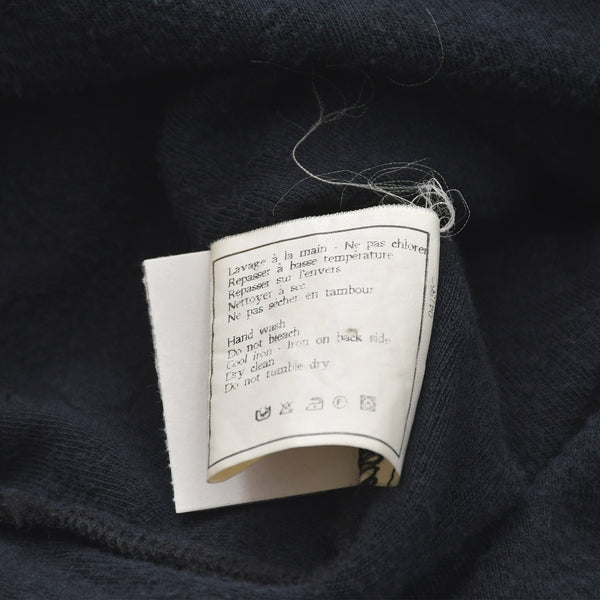 Lavage à la main - Ne pas chlorer
Repasser à basse température
Repasser sur l'envers
Nettoyer à sec
Ne pas sécher en tambour
Hand wash
Do not bleach
Cool iron - Iron on back side
Dry clean
Do not tumble dry